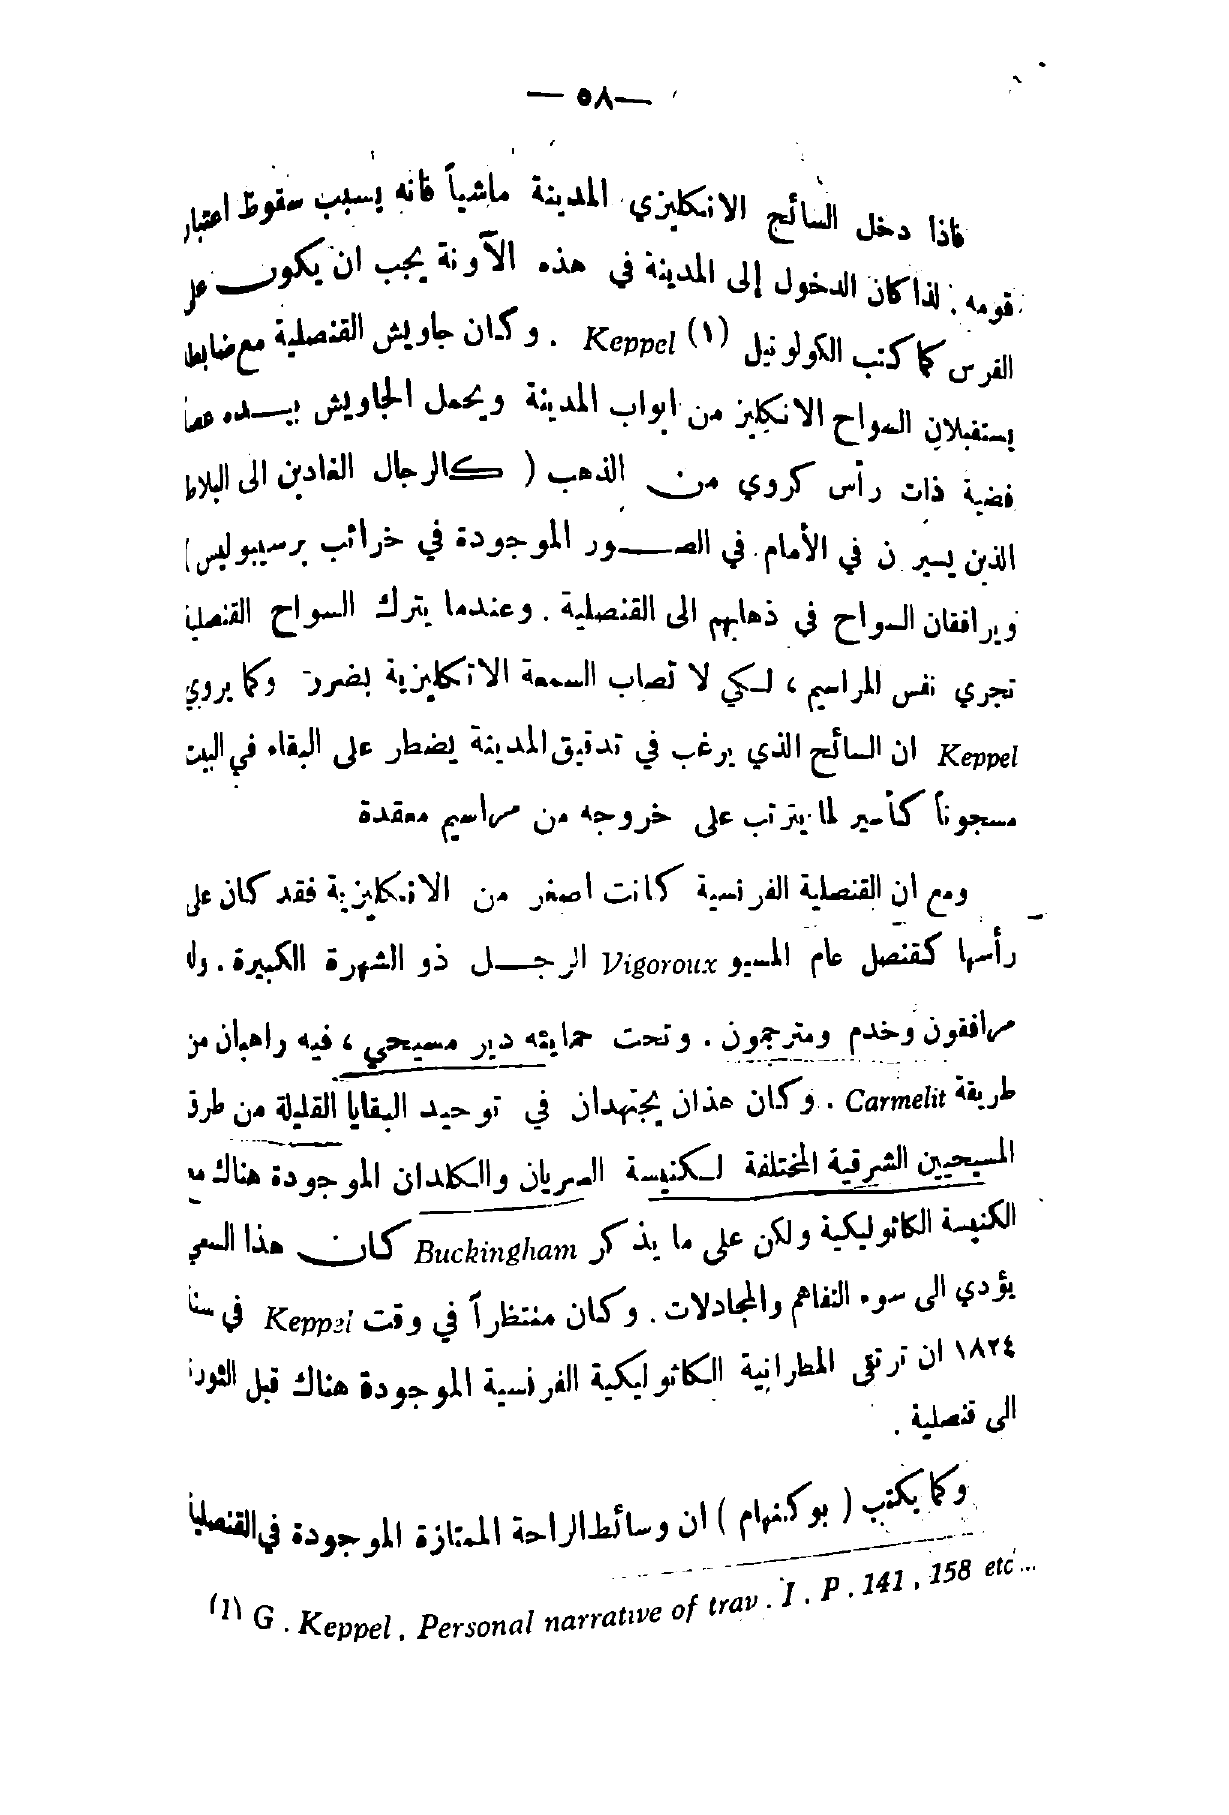 — ٥٨ —
فاذا دخل السائح الانكليزي المدينة ماشياً فانه يسبب سقوط اعتبار
قومه . لذا كان الدخول إلى المدينة في هذه الآونة يجب ان يكون على
الفرس كما كتب الكولونيل (١) Keppel . وكان جاويش القنصلية مع ضابط
يستقبلان السواح الانكليز من ابواب المدينة ويحمل الجاويش بيده عصا
فضية ذات رأس كروي من الذهب ( كالرجال الغادين الى البلاط
الذين يسير ن في الأمام في الصور الموجودة في خرائب برسيبوليس )
ويرافقان السواح في ذهابهم الى القنصلية . وعندما يترك السواح القنصلية
تجري نفس المراسيم ، لكي لا تصاب السمعة الانكليزية بضرر وكما يروي
Keppel ان السائح الذي يرغب في تدقيق المدينة يضطر على البقاء في البيت
مسجوناً كأسير لما يترتب على خروجه من مراسيم معقدة
ومع ان القنصلية الفرنسية كانت اصغر من الانكليزية فقد كان على
رأسها كقنصل عام المسيو Vigoroux الرجل ذو الشهرة الكبيرة . وله
مرافقون وخدم ومترجمون . وتحت حمايته دير مسيحي ، فيه راهبان من
طريقة Carmelit . وكان هذان يجتهدان في توحيد البقايا القليلة من طرق
المسيحيين الشرقية المختلفة لكنيسة السريان والكلدان الموجودة هناك مع
الكنيسة الكاثوليكية ولكن على ما يذكر Buckingham كان هذا السعي
يؤدي الى سوء التفاهم والمجادلات . وكان منتظراً في وقت Keppel في سنة
١٨٢٤ ان ترتقى المطرانية الكاثوليكية الفرنسية الموجودة هناك قبل الثورة
الى قنصلية .
وكما يكتب ( بوكنهام ) ان وسائط الراحة الممتازة الموجودة في القنصلية
(1) G . Keppel , Personal narrative of trav . I . P . 141 , 158 etc ...